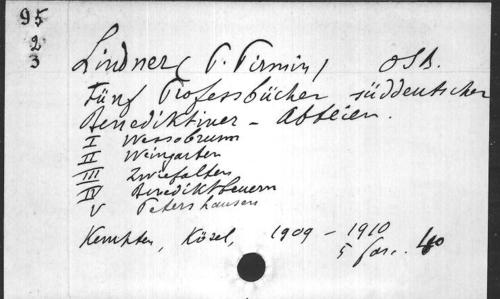 95
2
3
Lindner (P. Pirmin) OSB.
Fünf Professbücher süddeutscher
Benediktiner - Abteien.
I Wessobrunn
II Weingarten
III Zwiefalten
IV Benediktbeuern
V Petershausen
Kempten, Kösel, 1909 - 1910
5 fasc. 4o